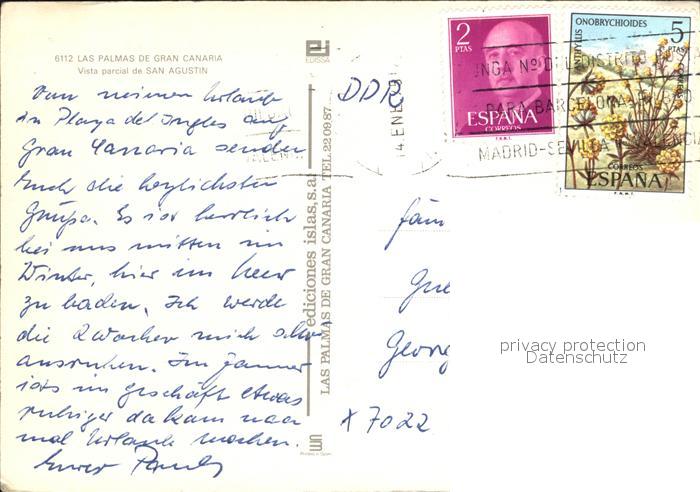 6112 LAS PALMAS DE GRAN CANARIA
Vista parcial de SAN AGUSTIN
Von meinen Urlaub
in Playa del Ingles auf
Gran Canaria sende
Euch die herzlichsten
Grüße. Es ist herrlich
bei uns mitten im
Winter, hier im Meer
zu baden. Ich werde
die 2 Wochen mich
ausruhen. Im Januar
ists im Geschäft etwas
ruhiger da kann man
mal Urlaub machen.
Euer
EDISSA
ediciones islas, s.a.
LAS PALMAS DE GRAN CANARIA TEL. 22 09 87
DDR
14 ENE
2
PTAS
ESPAÑA
CORREOS
F.N.M.T.
ONOBRYCHIOIDES
5
PTAS
CORREOS
ESPAÑA
F.N.M.T.
PONGA Nº DEL DISTRITO
PARA BARCELONA
MADRID-SEVILLA
Fam
Georg
X 7022
privacy protection
Datenschutz